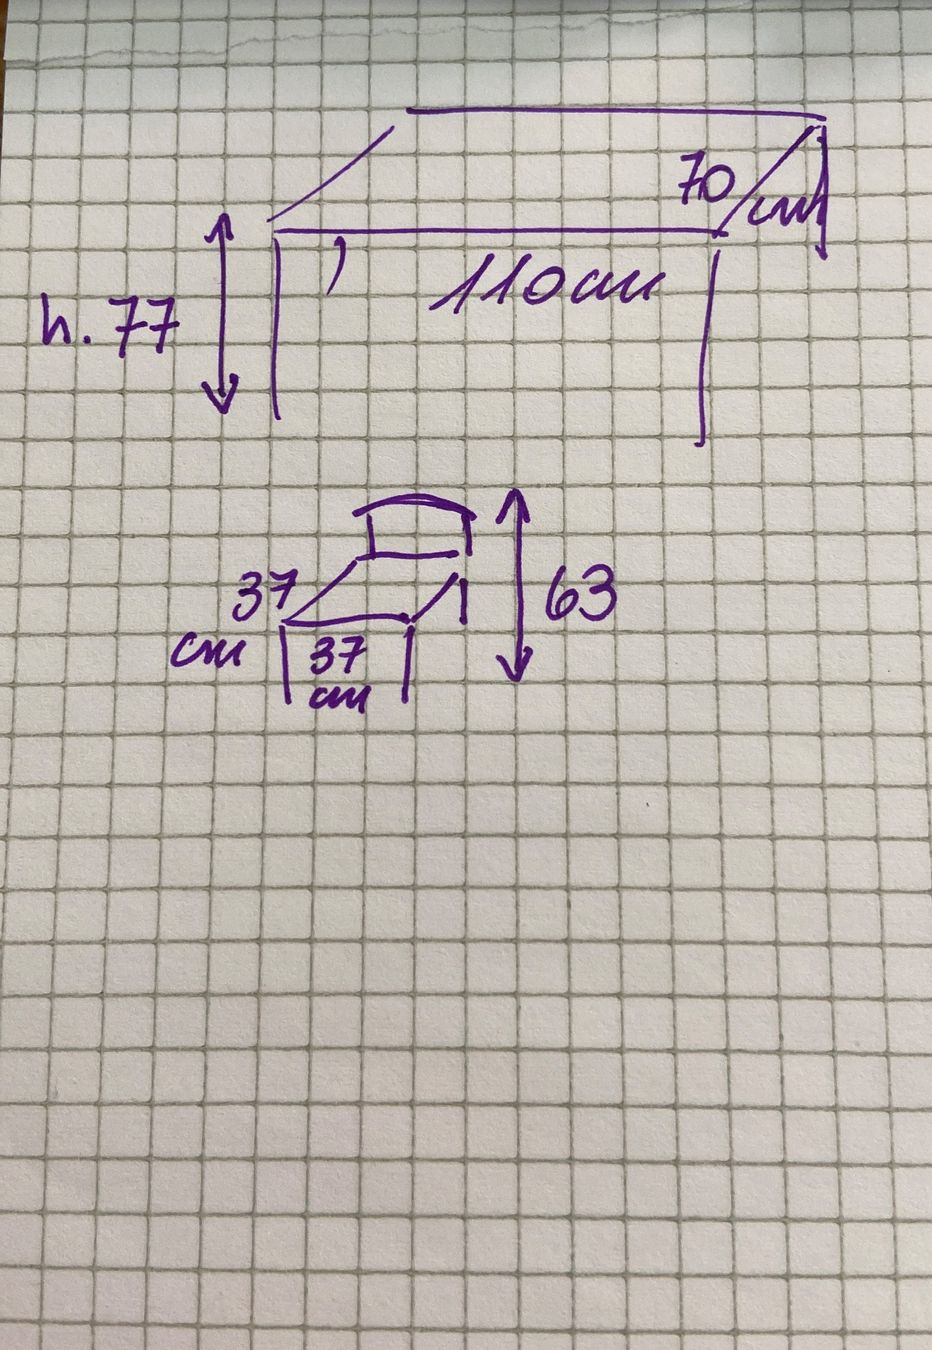 70 cm
110cm
h. 77
37
cm
63
37
cm